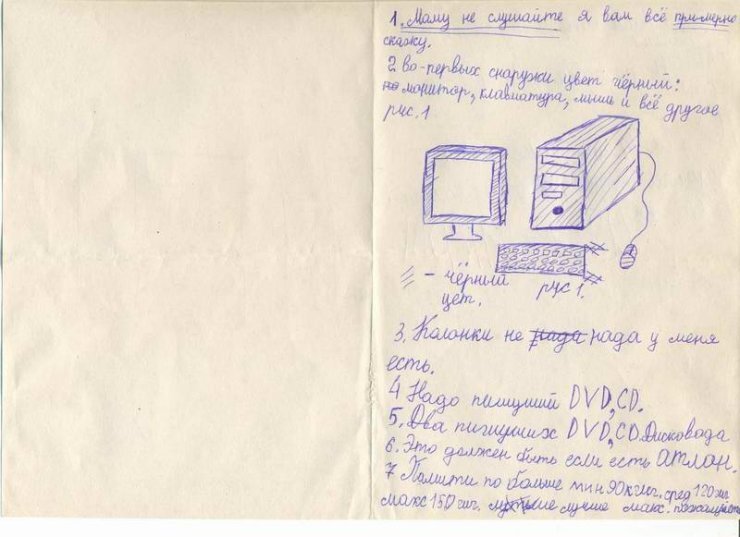 1. Маму не слушайте я вам всё примерно
скажу.
2 Во-первых снаружи цвет чёрный:
монитор, клавиатура, мышь и всё другое
рус. 1
- чёрный
цет.
рус 1.
3. Колонки не нада нада у меня
есть.
4 Надо пишущий DVD, CD.
5. Два пишущих DVD, CD. Дисковода
6. Это должен быть если есть атлон.
7 Помяти по больше мин 90 сред 120 гиг
макс 150 гиг. лучше макс. пожалуйста